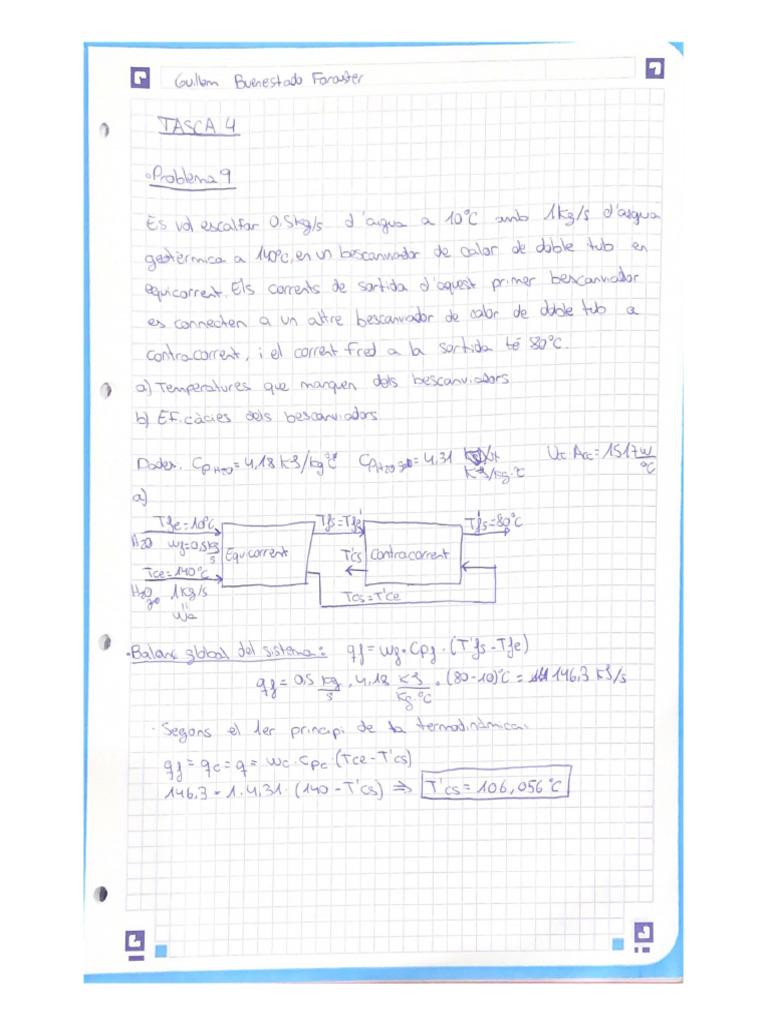 Guillem Buenestado Foraster
TASCA 4
·Problema 9
Es vol escalfar 0.5kg/s d'aigua a 10°C amb 1kg/s d'aigua
geotèrmica a 140°C, en un bescanviador de calor de doble tub en
equicorrent. Els corrents de sortida d'aquest primer bescanviador
es connecten a un altre bescanviador de calor de doble tub a
contracorrent, i el corrent fred a la sortida té 80°C.
a) Temperatures que marquen dels bescanviadors
b) Eficàcies dels bescanviadors.
Dades. CpH2O = 4,18 KJ/kg°C CpH2O go = 4,31 KJ/kg·°C Uc·Acc = 1517 W/°C
a)
Tfe = 10°C Tfs = Tfe' T'fs = 80°C
H2O wf = 0,5 kg/s Equicorrent T'cs Contracorrent
Tce = 140°C
H2O go 1kg/s Tcs = T'ce
wc
·Balanç global del sistema: qf = wf · Cpf · (T'fs - Tfe)
qf = 0,5 kg/s · 4,18 KJ/Kg·°C · (80-10)°C = 146,3 KJ/s
· Segons el 1er principi de la termodinàmica:
qf = qc = q = wc · Cpc · (Tce - T'cs)
146,3 = 1 · 4,31 · (140 - T'cs) ⇒ T'cs = 106,056°C